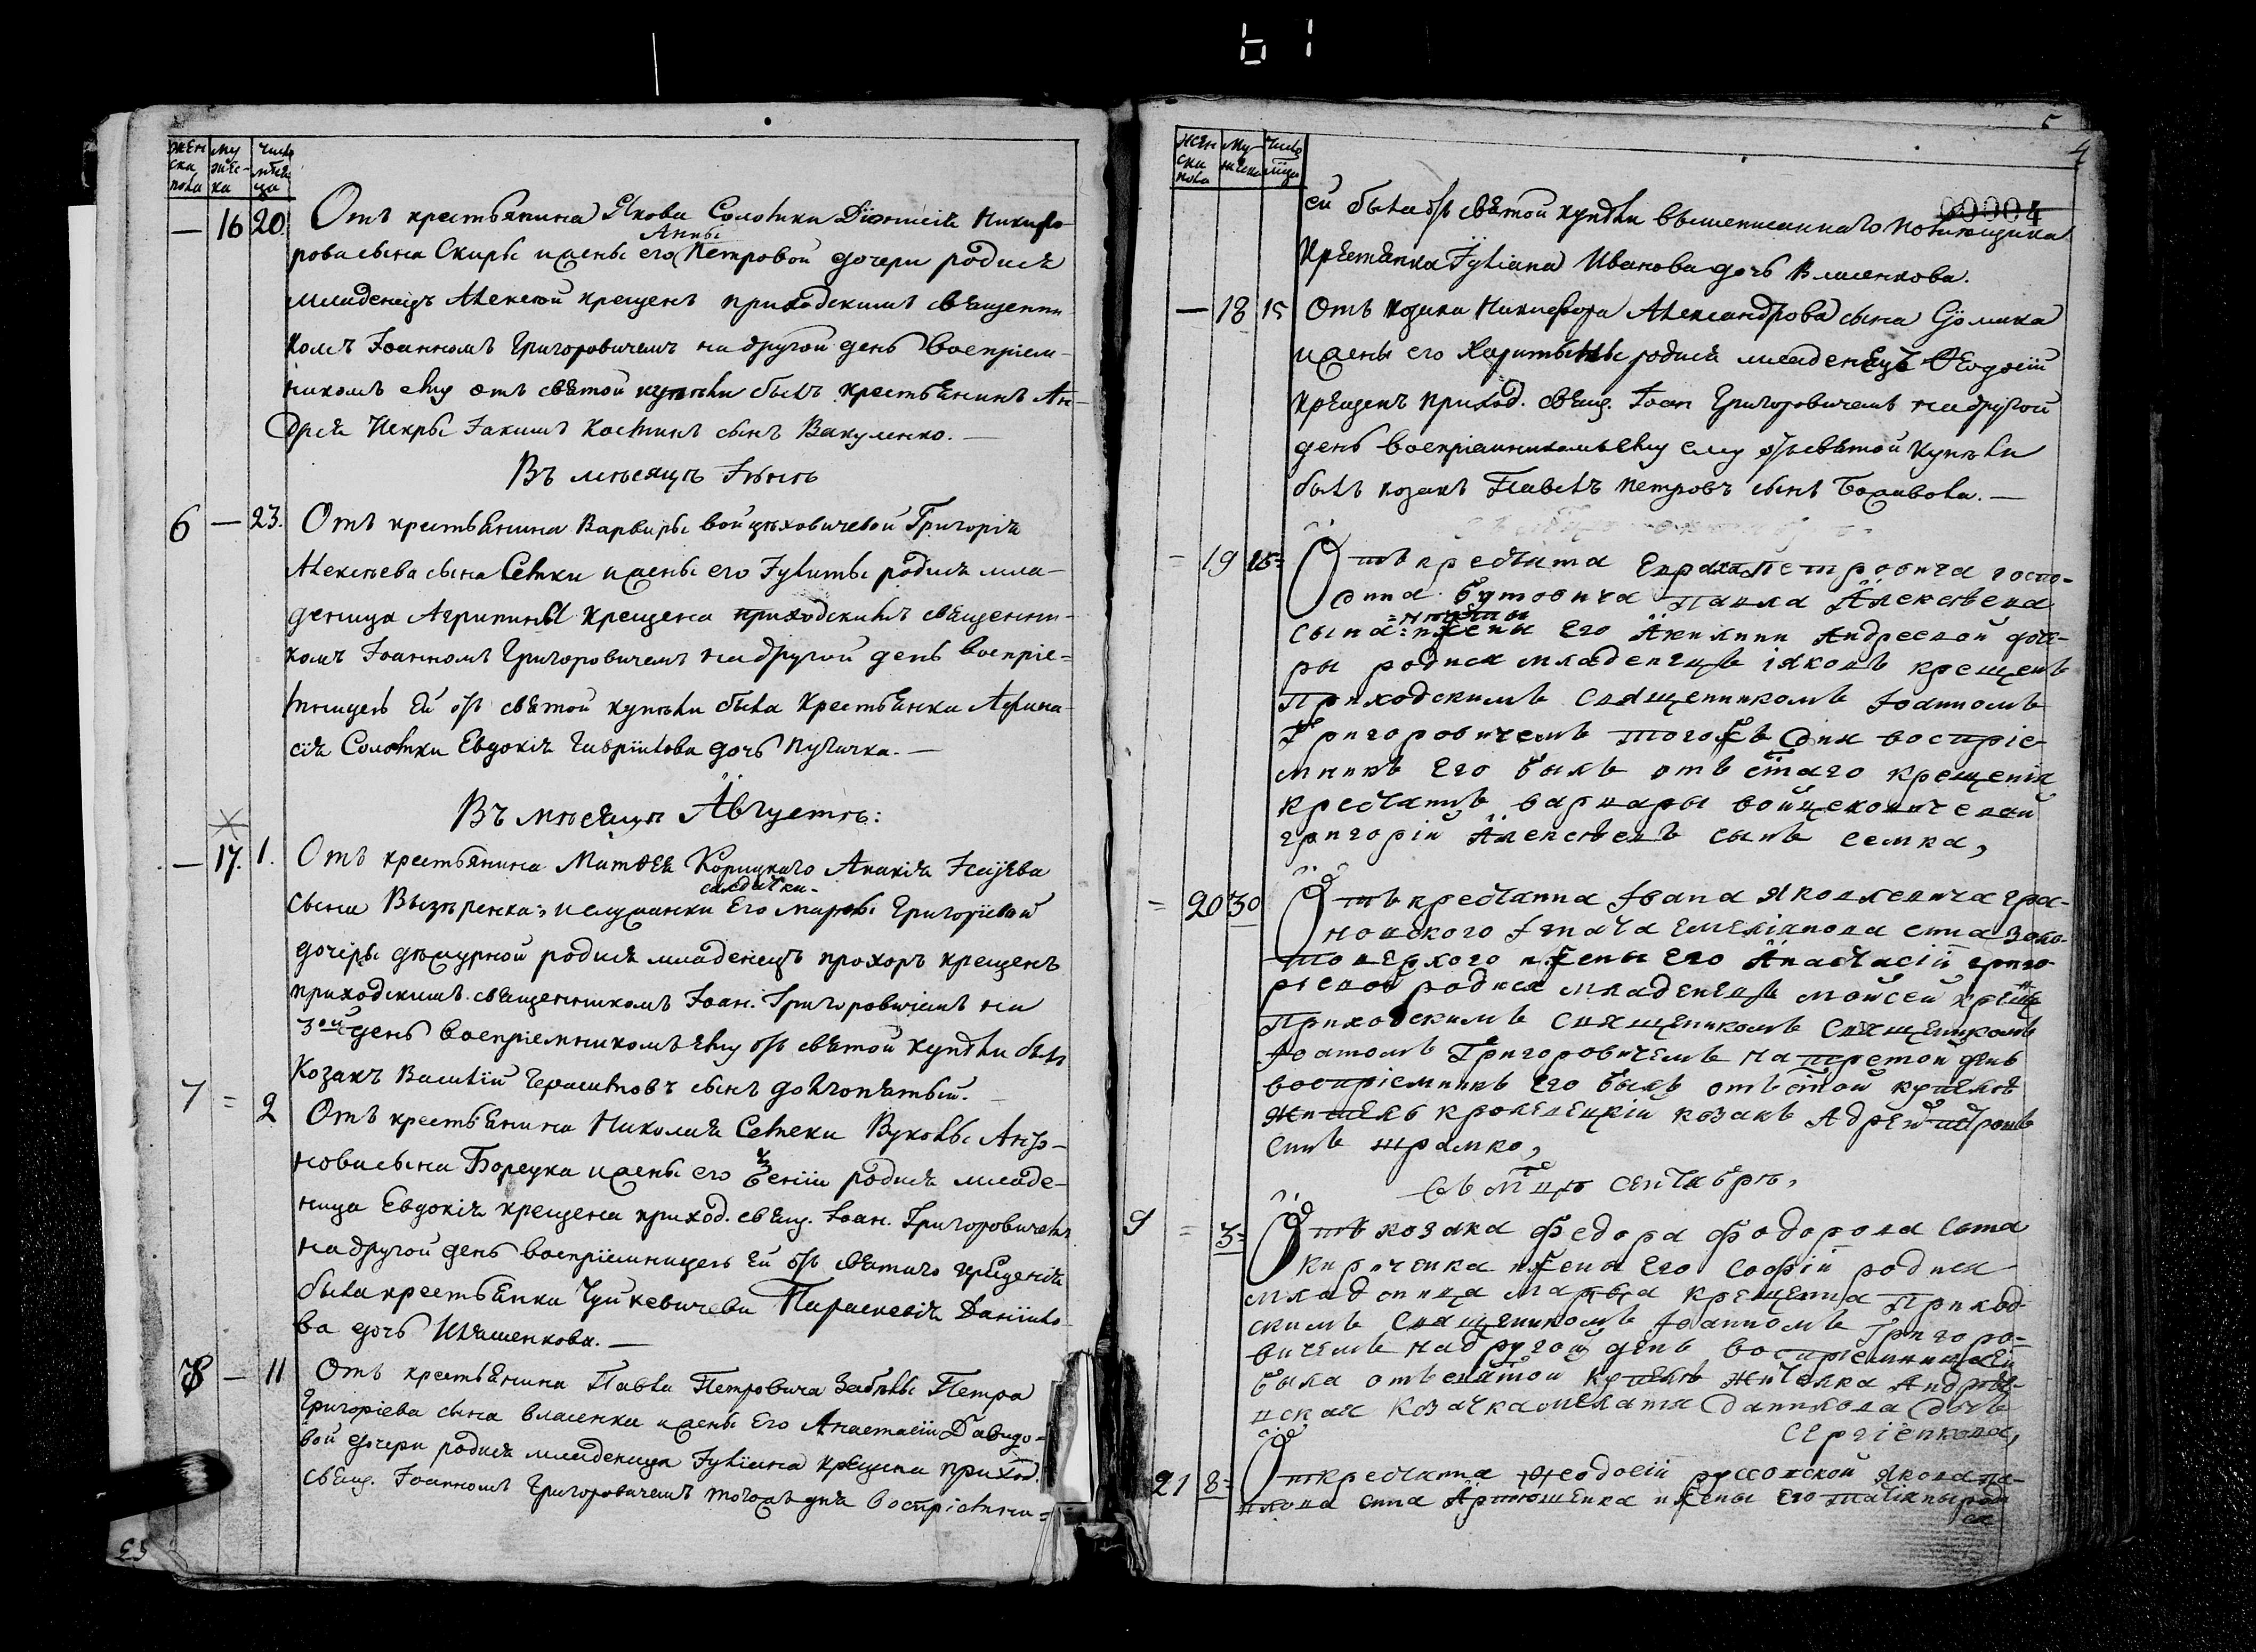 женска пола
мужеска
число мѣсяца
— 16 20 Отъ крестьянина Якова Солотки Діонисія Никифо-
рова сына Скиры и жены его Анны Петровой дочери родися
младенецъ Алексѣй крещенъ приходскимъ священни
комъ Іоанномъ Григоровичемъ на другой день воспріем-
никомъ ему отъ святой купѣли былъ крестьянинъ Ан-
дрея Искры Іакимъ Костинъ сынъ Вакуленко. —
Въ мѣсяцѣ Іюнѣ
6 — 23. Отъ крестьянина Варвары Войцѣховичевой Григорія
Алексѣева сына Семки и жены его Іулиты родися мла-
деница Агрипина крещена приходскимъ священни-
комъ Іоанномъ Григоровичемъ на другой день воспріе-
мницею ей отъ святой купѣли была крестьянка Афана
сія Солотки Евдокія Гавріилова дочь
Въ мѣсяцѣ Августѣ:
— 17. 1. Отъ крестьянина Матѳея Корицкаго Анакія Исаева
сына и служанки его солдатки Марѳы Григоріевой
дочеры родися младенецъ Прохоръ крещенъ
приходскимъ священникомъ Іоан. Григоровичемъ на
3ой день воспріемникомъ ему отъ святой купѣли былъ
Козакъ Василій Герасимовъ сынъ Долгопятый.
7 = 2 Отъ крестьянина Николая Семеки Вуколы Анто-
нова сына Борецка и жены его родися младе-
ница Евдокія крещена приход. свящ. Іоан. Григоровичемъ
на другой день воспріемницею ей отъ святаго крещенія
была крестьянка Чуйкевичева Параскевія Даніило-
ва дочь Ильяшенкова. —
8 — 11 Отъ крестьянина Павла Петровича Забѣлы Петра
Григоріева сына Власенка и жены его Анастасіи Давидо-
вой дочери родися младеница Іуліана крещена приход.
свящ. Іоанномъ Григоровичемъ того жъ дня воспріемни=
53
5
4
00004
женска пола
мужеска
число мѣсяца
ей была отъ святой купѣли вышеписаннаго помѣщика
Крестьянка Іуліана Иванова дочь Власенкова.
— 18 15 Отъ козака Никифора Александрова сына
и жены его Харитыны родися младенецъ Ѳеодосій
крещенъ приход. свящ. Іоан Григоровичемъ на другой
день воспріемникомъ ему ему отъ святой купѣли
былъ козакъ Павелъ Петровъ сынъ —
= 19 25= Отъ крестянина Петровича госпо-
дина Бутовича Павла Алексѣева
сына: и жены его Акилини Андреевой доче-
ры родися младенецъ Іяковъ крещенъ
Приходскимъ Священникомъ Іоанномъ
Григоровичемъ тогожъ дня воспріе
мникъ его былъ отъ стаго крещенія
крестянинъ варвары войцеховичевой
григорій Алексѣевъ сынъ семка,
= 20 30 Отъ крестянина Івана Яковлевича гра-
новского Ігната Емеліянова сина Золо-
товерхого и жены его Анастасіи григо
рьевой родися младенецъ Мойсей крещ
Приходскимъ Священикомъ Священикомъ
Іоаномъ Григоровичемъ на день
воспріемникъ его былъ отъ стой купелѣ
житель кролевецкій козакъ Адрей
синъ шрамко,
Въ мцѣ сентябрѣ,
9 = 3= Отъ козака Федора Федорова сина
Кириченка и жены его Софіи родися
младеница Марѳа крещенна Приход
скимъ Священикомъ Іоанномъ Григоро-
вичемъ на другой день воспріемницею ей
была отъ святой купелѣ жителка
козачка Мелатя Данилова дочь
Сергіенкова,
21 8= Отъ крестянина Ѳеодосіи руссовской Якова па-
влова сина Артюшенка и жены его Татіяны роди
ся